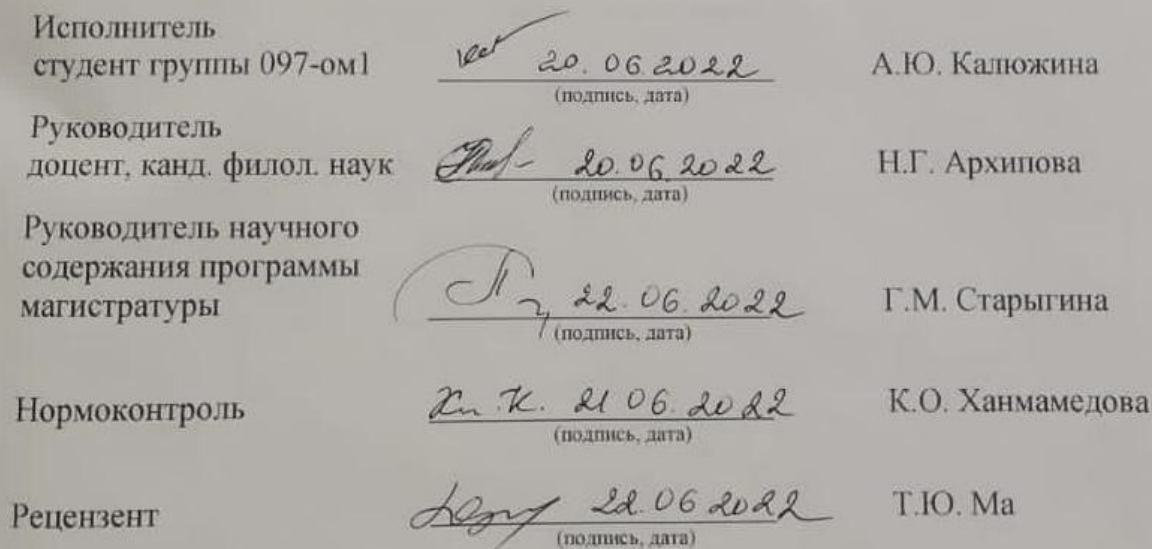 Исполнитель
студент группы 097-ом1 20.06.2022 А.Ю. Калюжина
(подпись, дата)
Руководитель
доцент, канд. филол. наук 20.06.2022 Н.Г. Архипова
(подпись, дата)
Руководитель научного
содержания программы
магистратуры 22.06.2022 Г.М. Старыгина
(подпись, дата)
Нормоконтроль 21 06.2022 К.О. Ханмамедова
(подпись, дата)
Рецензент 22.06 2022 Т.Ю. Ма
(подпись, дата)